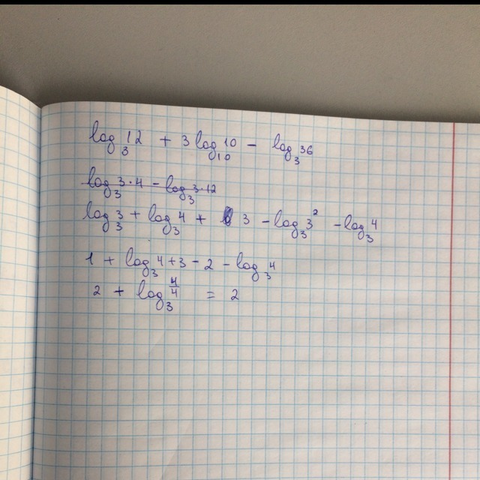 log₃12 + 3log₁₀10 - log₃36
log₃3·4 - log₃3·12
log₃3 + log₃4 + 3 - log₃3² - log₃4
1 + log₃4 + 3 - 2 - log₃4
2 + log₃4/4 = 2